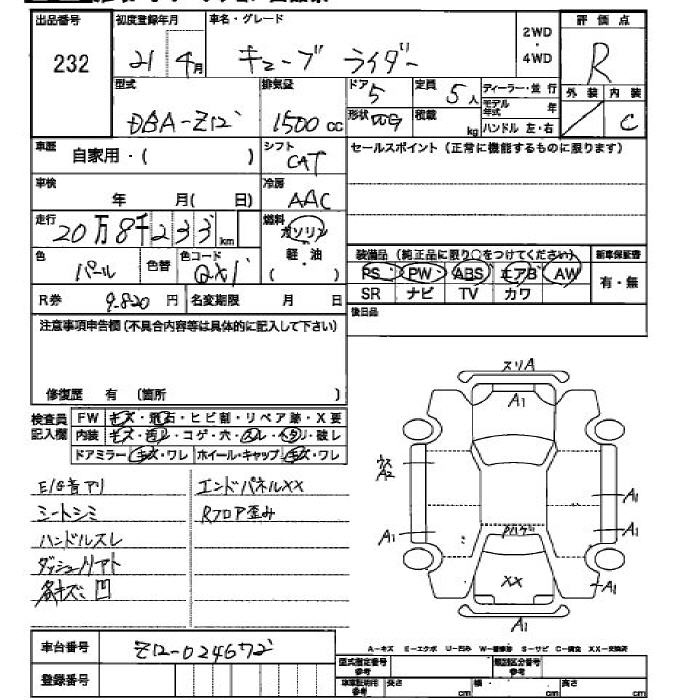 出品番号 232
初度登録年月 21 4月
車名・グレード キューブ ライダー
2WD・4WD
評価点 R
型式 DBA-Z12
排気量 1500 cc
ドア 5
定員 5人
ディーラー・並行
モデル年式 年
ハンドル 左・右
形状
積載 kg
外装 / 内装 C
車歴 自家用・( )
シフト CAT
セールスポイント(正常に機能するものに限ります)
車検 年 月(日)
冷房 AAC
走行 20万8千233km
燃料 ガソリン 軽・油 ( )
色 パール 色替 色コード QX1
装備品(純正品に限り○をつけてください) 新車保証書
PS PW ABS エアB AW 有・無
SR ナビ TV カワ
R券 9.820円 名変期限 月 日
後日品
注意事項申告欄(不具合内容等は具体的に記入して下さい)
修復歴 有 (箇所 )
検査員記入欄 FW キズ・飛石・ヒビ割・リペア跡・X要
内装 キズ・汚レ・コゲ・穴・スレ・ヘタリ・破レ
ドアミラー キズ・ワレ ホイール・キャップ キズ・ワレ
E/G音アリ エンドパネルXX
シートシミ Rフロア歪み
ハンドルスレ
ダッシュノリアト
各キズミ凹
スリA
A1
ウス A2
A1
A1
Pハゲ
A1
XX
A1
車台番号 Z12-024672
登録番号
A1
A-キズ E-エクボ U-凹ミ W-補修跡 S-サビ C-腐食 XX-交換済
型式指定番号 参考 類別区分番号 参考
車庫証明用 参考 長さ cm 幅 cm 高さ cm